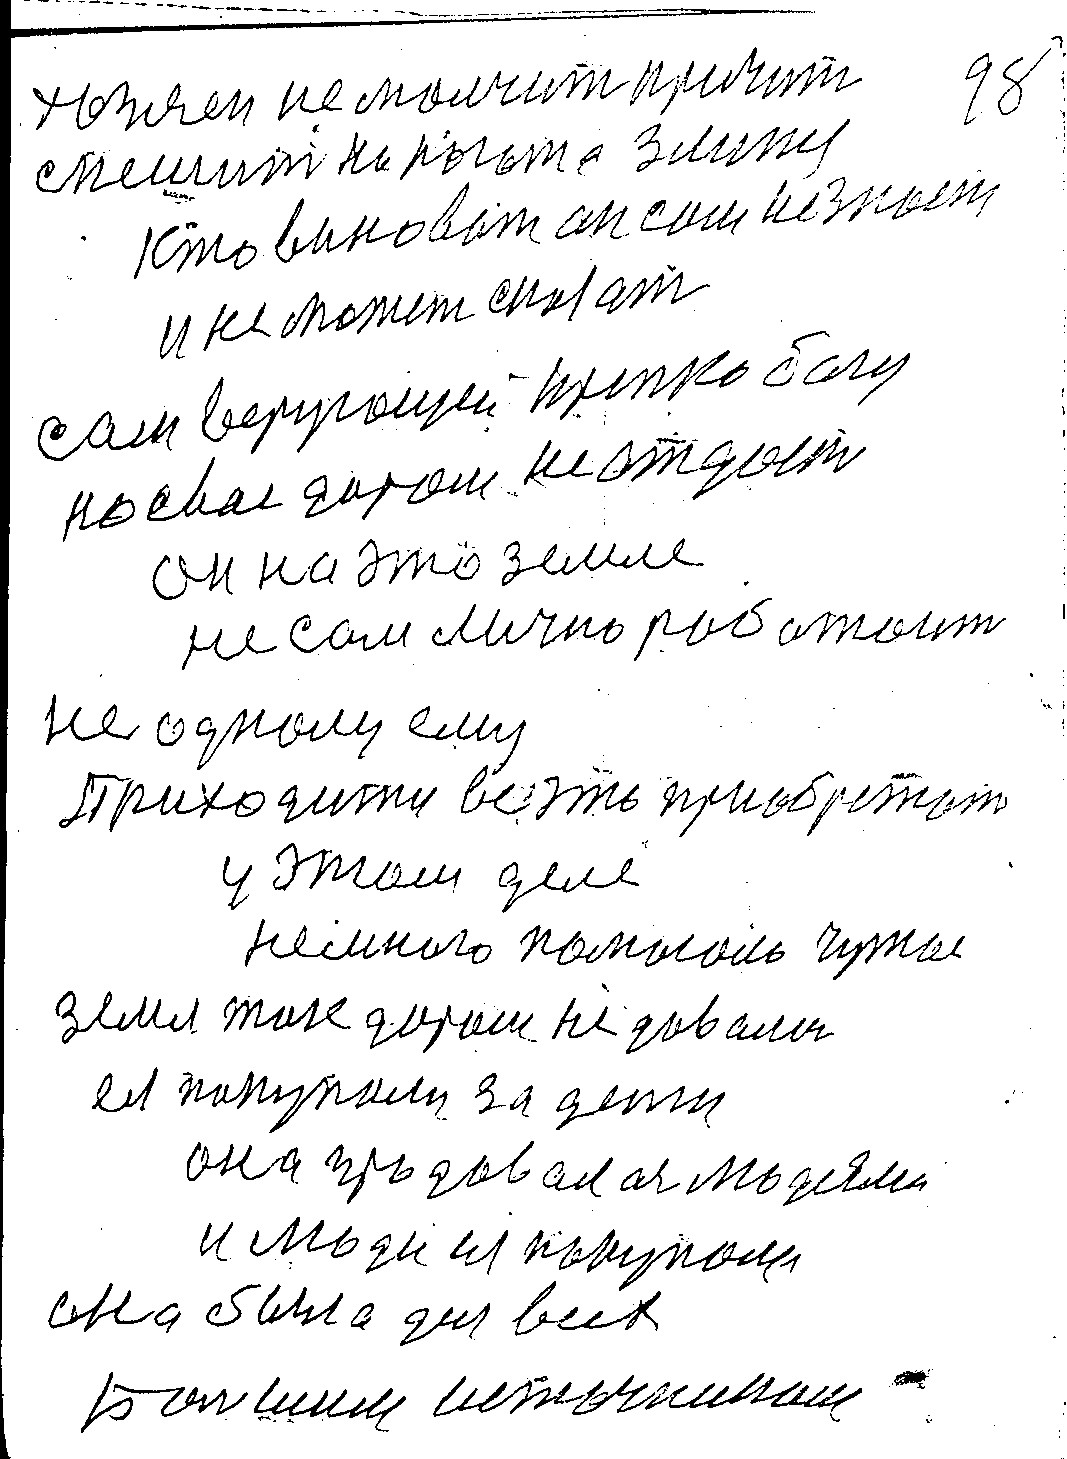 98
хозяен не молчит кричит
спешит на
Кто виноват ан сам незноет
и не может сказат
сам верующей крепко богу
но свае даром не отдоет
он на это земле
не сам лично роботоит
не одному ему
Приходитти все это приобретат
у этом деле
немного помогаль чужое
земля тоже даром не довалас
ея покупали за денги
она продовалася людями
и люди ея покупали
она была для всех
Болшим источником -